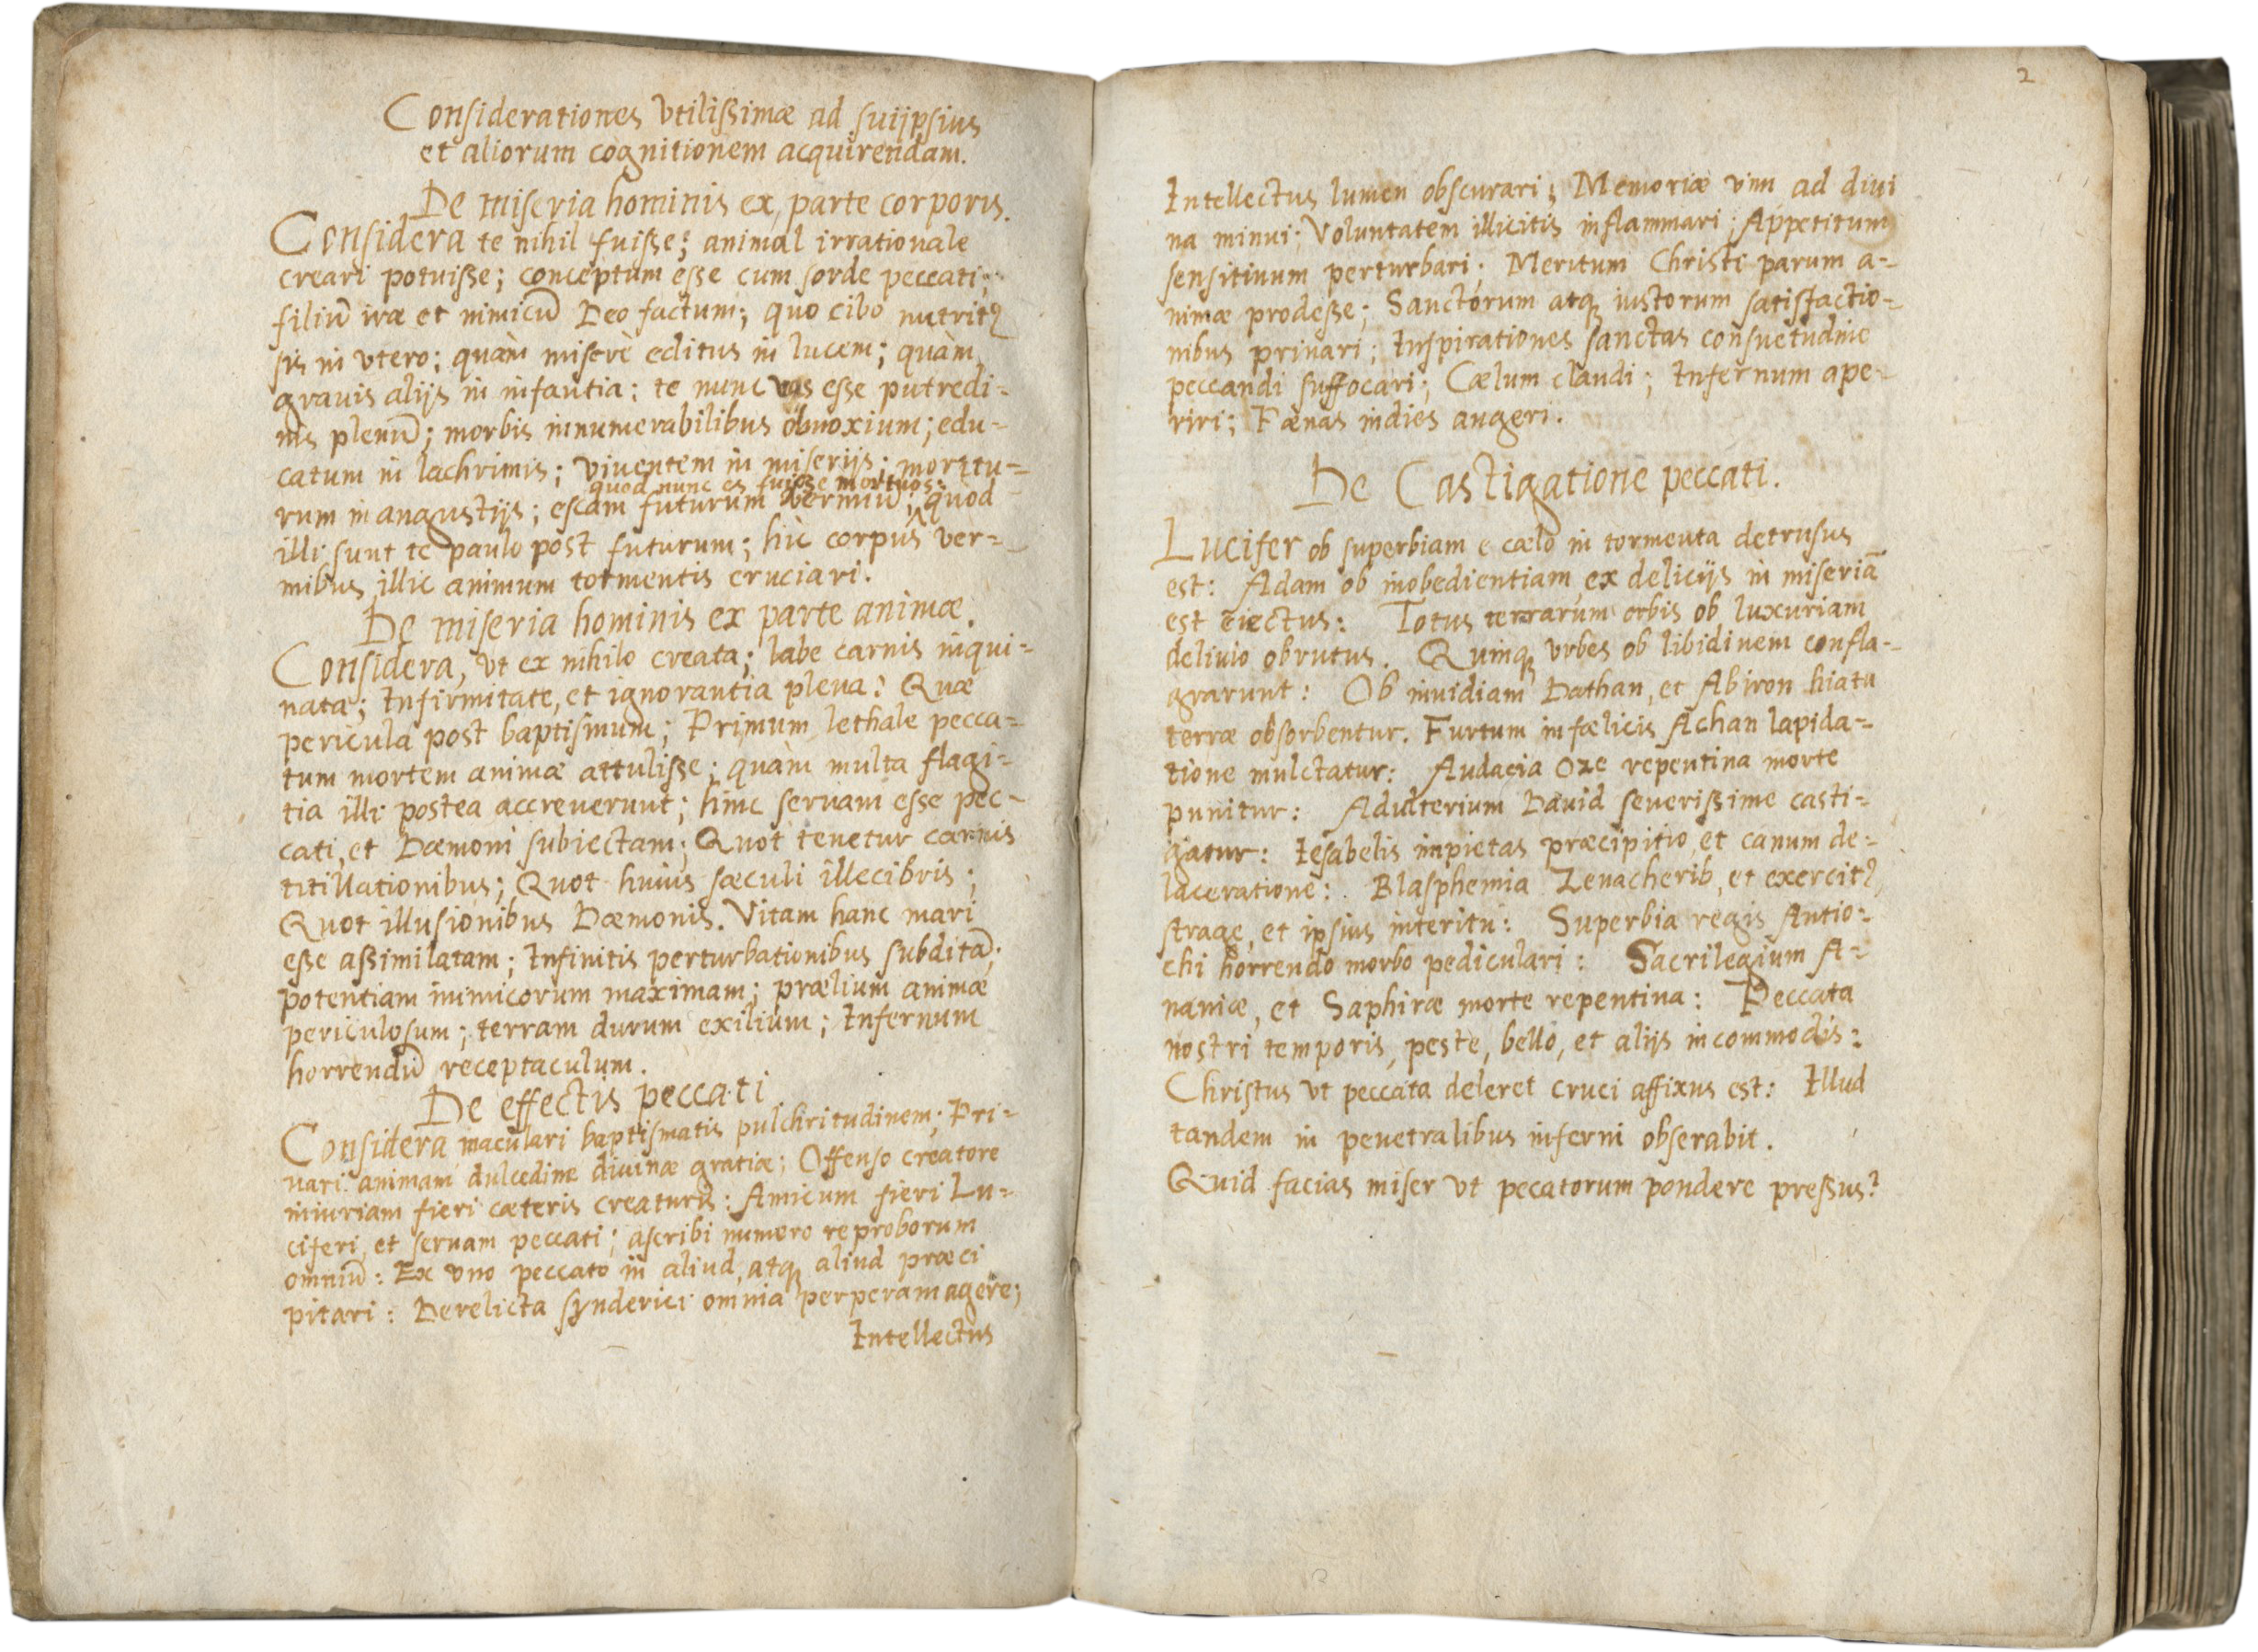 Considerationes vtilißimæ ad suijpsius
et aliorum cognitionem acquirendam.
De miseria hominis ex parte corporis.
Considera te nihil fuiße; animal irrationale
creari potuiße; conceptum eße cum sorde peccati;
filiū iræ et inimicū Deo factum; quo cibo nutritꝰ
sis in vtero; quàm miserè editus in lucem; quàm
grauis alijs in infantia: te nunc vas esse putredi-
nis plenū; morbis innumerabilibus obnoxium; edu-
catum in lachrimis; viuentem in miserijs; moritu-
quod nunc es fuiße mortuos:
rum in angustijs; escam futurum vermiū; quod
illi sunt te paulo post futurum; hìc corpus ver-
mibus illic animum tormentis cruciari.
De miseria hominis ex parte animæ.
Considera, vt ex nihilo creata; labe carnis inqui-
nata; Infirmitate, et ignorantia plena: Quæ
pericula post baptismum; Primum lethale pecca-
tum mortem animæ attuliße; quàm multa flagi-
tia illi postea accreuerunt; hinc seruam esse pec-
cati, et Dæmoni subiectam; Quot tenetur carnis
titillationibus; Quot huius sæculi illecibris;
Quot illusionibus Dæmonis. Vitam hanc mari
eße aßimilatam; Infinitis perturbationibus subditā;
potentiam inimicorum maximam; prælium animæ
periculosum; terram durum exilium; Infernum
horrendū receptaculum.
De effectis peccati.
Considera maculari baptismatis pulchritudinem; Pri-
uari animam dulcedine diuinæ gratiæ; Offenso creatore
iniuriam fieri cæteris creaturis: Amicum fieri Lu-
ciferi, et seruam peccati; ascribi numero reproborum
omniū: Ex vno peccato in aliud, atq aliud præci
pitari: Derelicta synderici omnia perperam agere;
Intellectus
2
Intellectus lumen obscurari; Memoriæ vim ad diui
na minui; Voluntatem illicitis inflammari; Appetitum
sensitiuum perturbari; Meritum Christi parum a-
nimæ prodeße; Sanctorum atq iustorum satisfactio-
nibus priuari; Inspirationes sanctas consuetudine
peccandi suffocari; Cælum claudi; Infernum ape-
riri; Pænas indies augeri.
De Castigatione peccati.
Lucifer ob superbiam e cælo in tormenta detrusus
est: Adam ob inobedientiam ex delicijs in miseriā
est eiectus: Totus terrarum orbis ob luxuriam
deliuio obrutus. Quinq vrbes ob libidinem confla-
grarunt: Ob inuidiam Dathan, et Abiron hiatu
terræ obsorbentur. Furtum infælicis Achan lapida-
tione mulctatur: Audacia Oze repentina morte
punitur: Adulterium Dauid seuerißime casti-
gatur: Iesabelis impietas præcipitio, et canum de-
laceratione: Blasphemia Zenacherib, et exercitꝰ
strage, et ipsius interitu: Superbia regis Antio-
chi horrendo morbo pediculari: Sacrilegium A-
naniæ, et Saphiræ morte repentina: Peccata
nostri temporis, peste, bello, et alijs incommodis:
Christus vt peccata deleret cruci affixus est: Illud
tandem in penetralibus inferni obserabit.
Quid facias miser vt pecatorum pondere preßus?